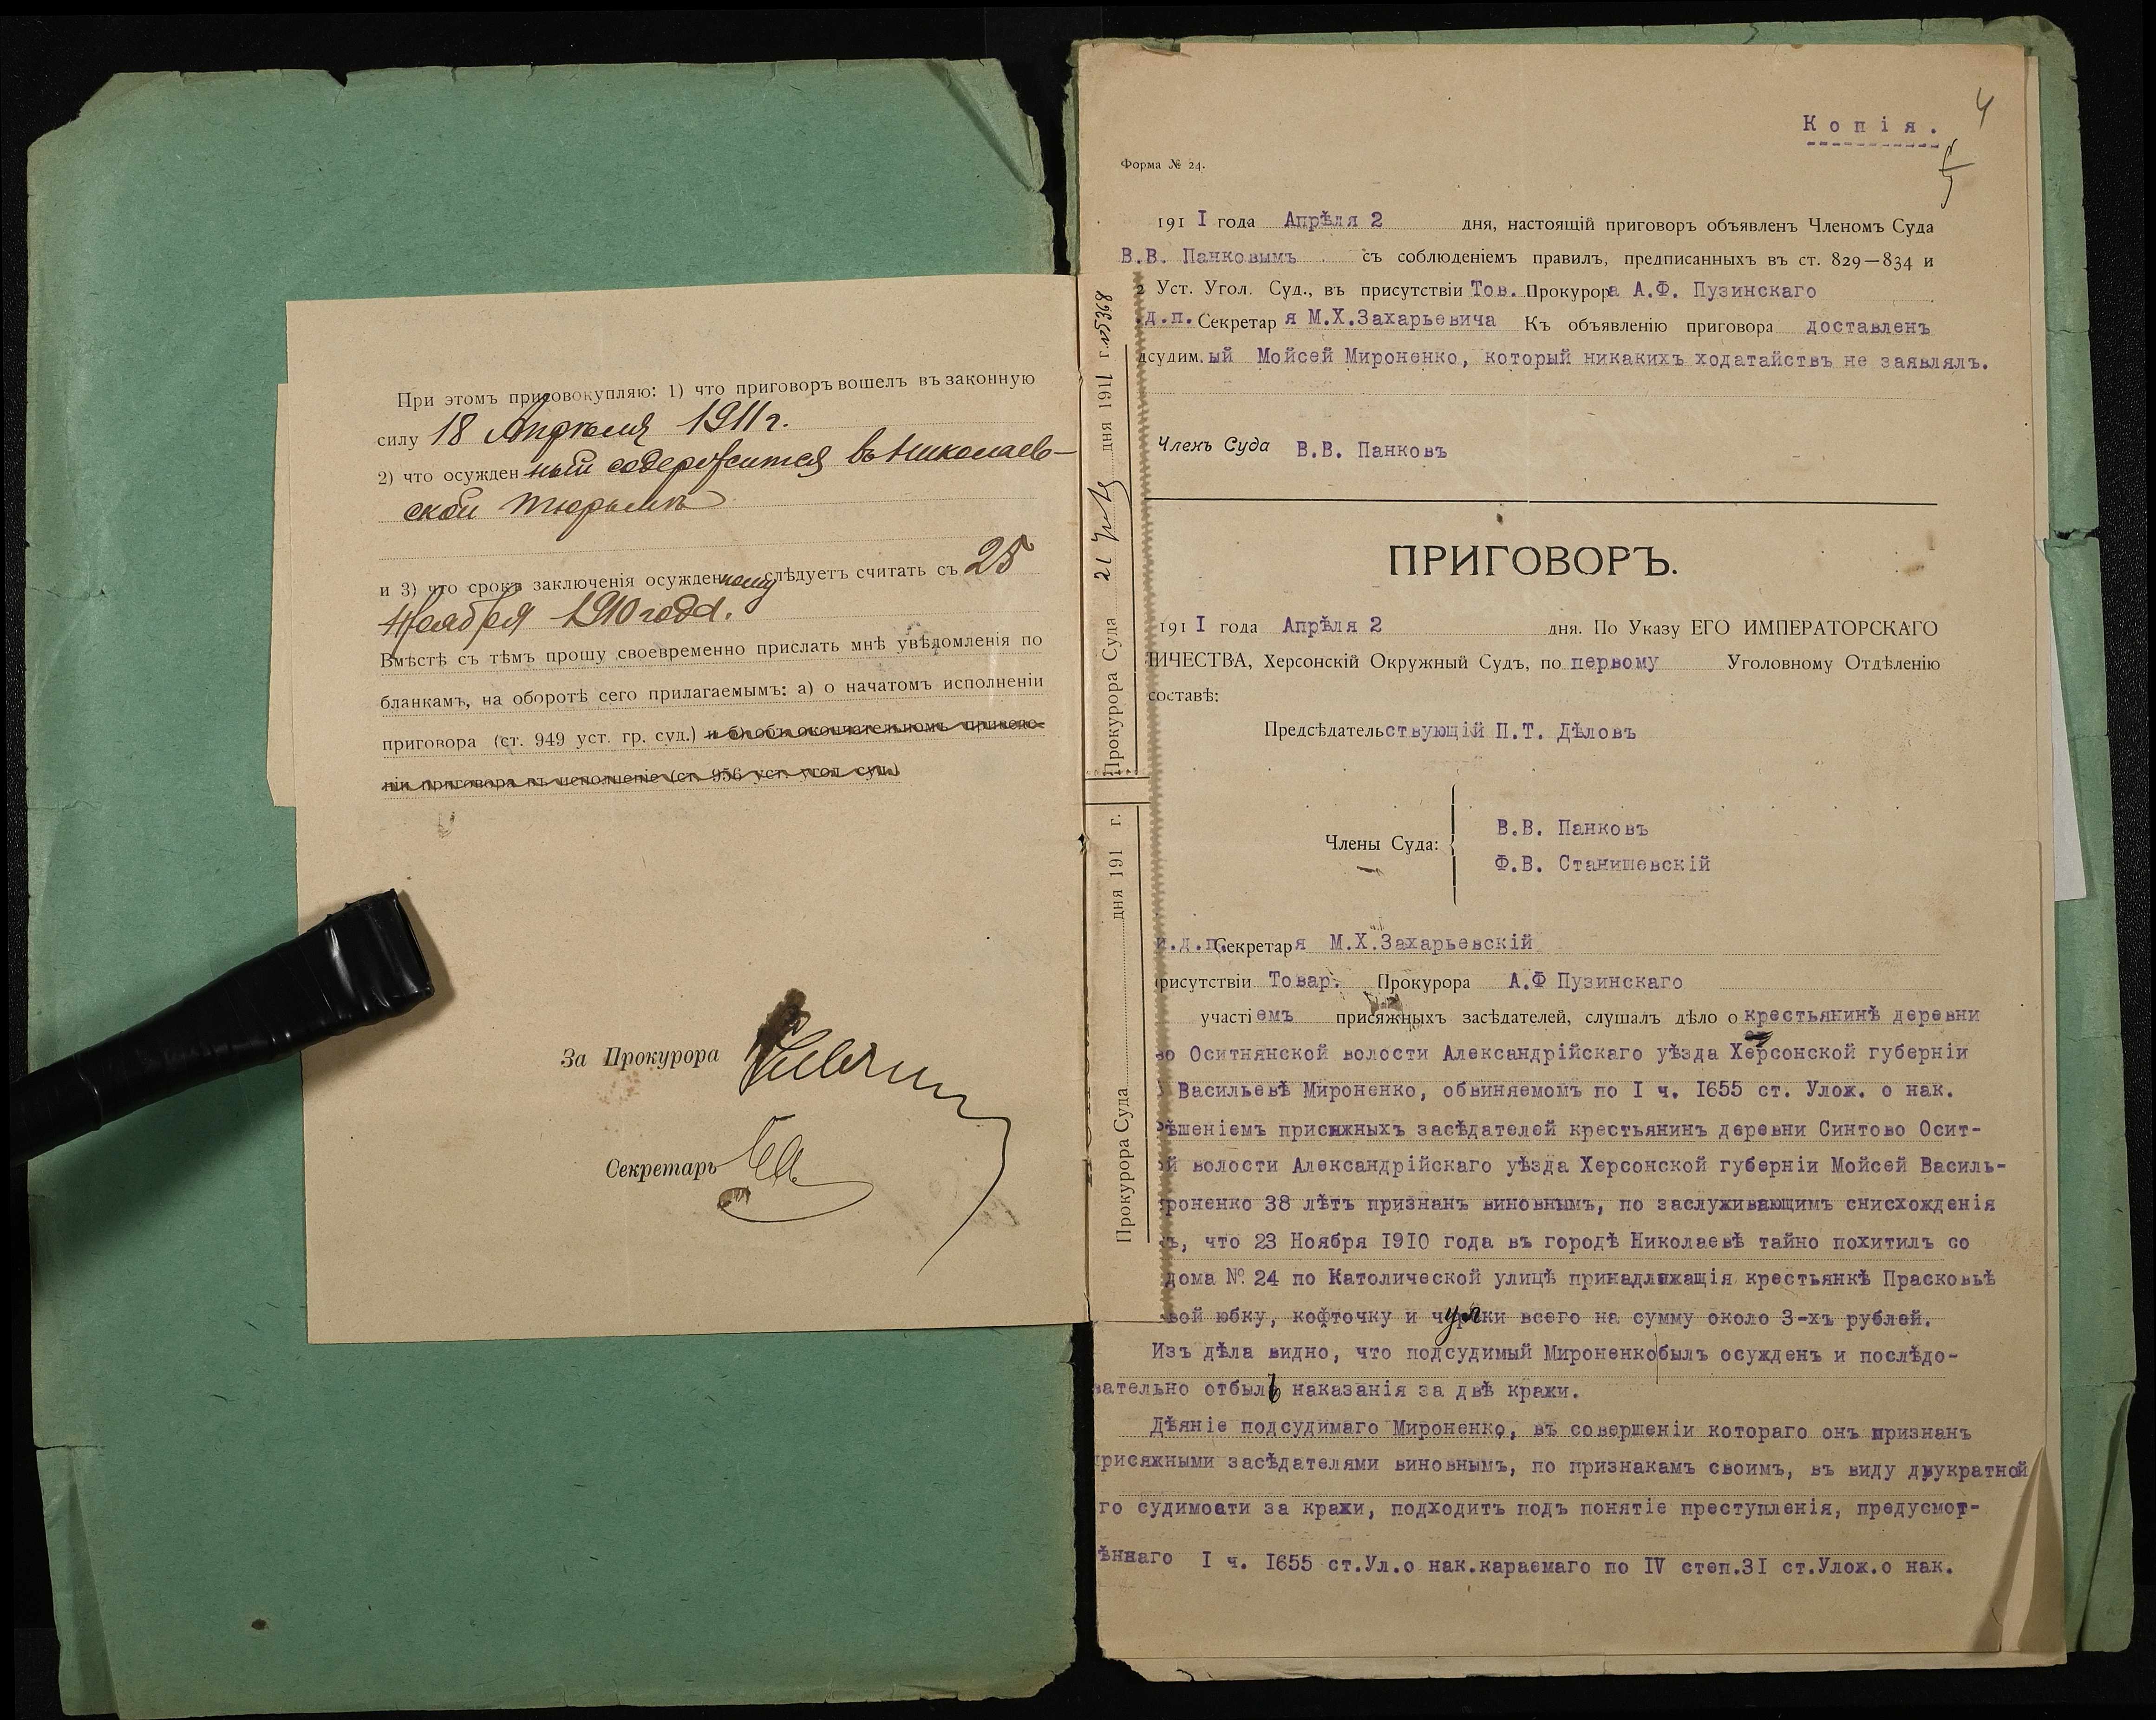 При этомъ присовокупляю: 1) что приговоръ вошелъ въ законную
силу 18 Апрѣля 1911 г.
2) что осужденный содержится въ Николаев-
ской тюрьмѣ
и 3) что срокъ заключенія осужденному слѣдуетъ считать съ 25
Ноября 1910 года.
Вмѣстѣ съ тѣмъ прошу своевременно прислать мнѣ увѣдомленія по
бланкамъ, на оборотѣ сего прилагаемымъ: а) о начатомъ исполненіи
приговора (ст. 949 уст. гр. суд.) и б) объ окончательномъ приведе-
ніи приговора въ исполненіе (ст. 956 уст. угол. суд.)
За Прокурора
Секретарь
Прокурора Суда 21 дня 1911 г. № 5368
Прокурора Суда дня 191 г.
4
Копія.
Форма № 24.
191I года Апрѣля 2 дня, настоящій приговоръ объявленъ Членомъ Суда
В.В. Панковымъ съ соблюденіемъ правилъ, предписанныхъ въ ст. 829—834 и
2 Уст. Угол. Суд., въ присутствіи Тов. Прокурора А.Ф. Пузинскаго
.д.п. Секретаря М.Х.Захарьевича Къ объявленію приговора доставленъ
дсудимый Мойсей Мироненко, который никакихъ ходатайствъ не заявлялъ.
Членъ Суда В.В. Панковъ
ПРИГОВОРЪ.
191I года Апрѣля 2 дня. По Указу ЕГО ИМПЕРАТОРСКАГО
ИЧЕСТВА, Херсонскій Окружный Судъ, по первому Уголовному Отдѣленію
составѣ:
Предсѣдательствующій П.Т. Дѣловъ
Члены Суда:
В.В. Панковъ
Ф.В. Станишевскій
и.д.п. Секретаря М.Х.Захарьевскій
рисутствіи Товар. Прокурора А.Ф Пузинскаго
участіемъ присяжныхъ засѣдателей, слушалъ дѣло о крестьянинѣ деревни
во Оситнянской волости Александрійскаго уѣзда Херсонской губерніи
Васильевѣ Мироненко, обвиняемомъ по I ч. 1655 ст. Улож. о нак.
ѣшеніемъ присяжныхъ засѣдателей крестьянинъ деревни Синтово Осит-
й волости Александрійскаго уѣзда Херсонской губерніи Мойсей Василь-
роненко 38 лѣтъ признанъ виновнымъ, по заслуживающимъ снисхожденія
ъ, что 23 Ноября 1910 года въ городѣ Николаевѣ тайно похитилъ со
дома № 24 по Католической улицѣ принадлежащія крестьянкѣ Прасковьѣ
вой юбку, кофточку и чулки всего на сумму около 3-хъ рублей.
Изъ дѣла видно, что подсудимый Мироненко былъ осужденъ и послѣдо-
вательно отбылъ наказанія за двѣ кражи.
Дѣяніе подсудимаго Мироненко, въ совершеніи котораго онъ признанъ
присяжными засѣдателями виновнымъ, по признакамъ своимъ, въ виду двукратной
го судимости за кражи, подходитъ подъ понятіе преступленія, предусмот-
ѣннаго I ч. 1655 ст.Ул.о нак.караемаго по IV степ.31 ст.Улож.о нак.